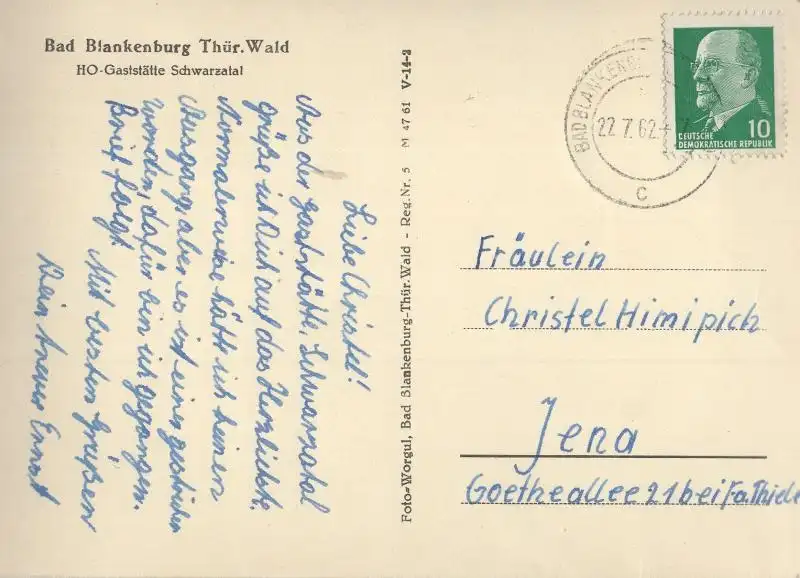 Bad Blankenburg Thür. Wald
HO-Gaststätte Schwarzatal
Liebe Christel!
Aus der Gaststätte Schwarzatal
grüße ich Dich auf das Herzlichste.
Normalerweise hätte ich keinen
Ausgang, aber es ist einer gestrichen
worden, dafür bin ich gegangen.
Brief folgt.
Mit besten Grüßen
Dein treuer Ernst
Foto-Worgul, Bad Blankenburg-Thür. Wald - Reg. Nr. 5 M 47 61 V-14-2
BAD BLANKENB
22.7.62
c
10
DEUTSCHE
DEMOKRATISCHE REPUBLIK
Fräulein
Christel Himipich
Jena
Goetheallee 21 bei Fa. Thiele